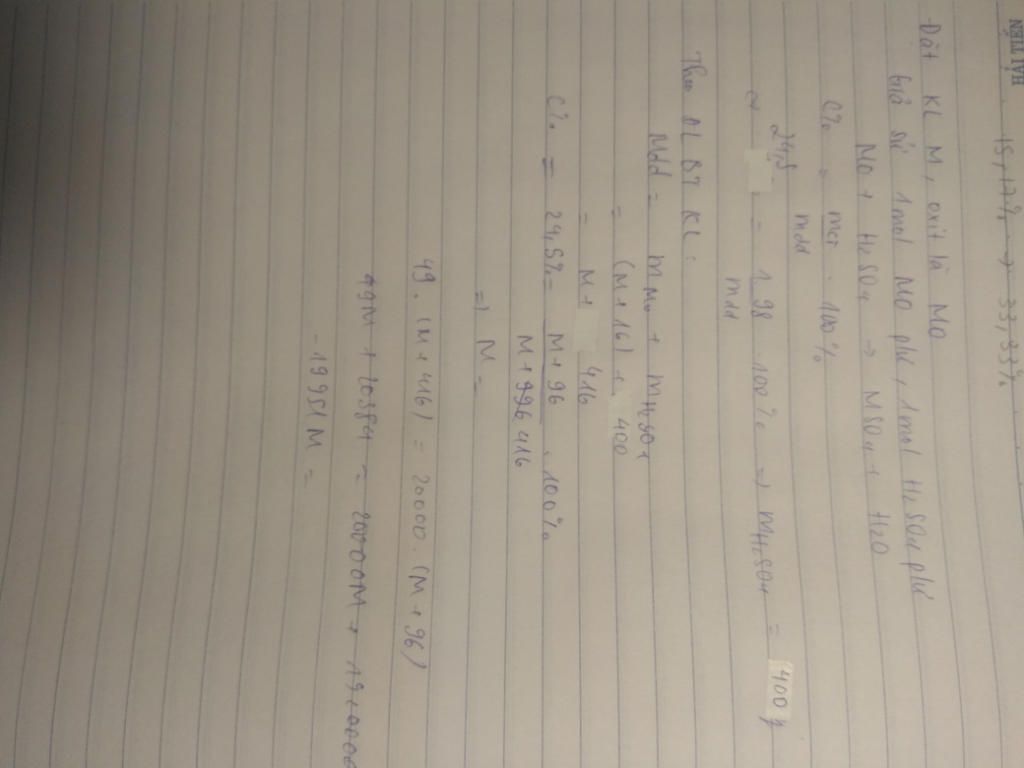 HẢI TIẾN
15,17% → 33,33%
-Đặt KL M, oxit là MO
Giả sử 1mol MO pứ, 1mol H2SO4 pứ
MO + H2SO4 → MSO4 + H2O
C% = mct/mdd . 100%
24,5 = 1.98/mdd . 100% => mH2SO4 = 400g
Theo ĐL BT KL:
Mdd = mMO + mH2SO4
= (M+16) + 400
= M + 416
C% = 24,5% = M+96/M+996 416 . 100%
=) M =
49. (M+416) = 20000. (M+96)
49M + 20384 = 20000M +
-19951M =